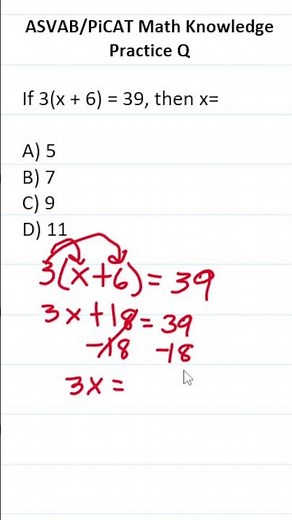 ASVAB/PiCAT Math Knowledge
Practice Q
If 3(x + 6) = 39, then x=
A) 5
B) 7
C) 9
D) 11
3(x+6) = 39
3x+18 = 39
-18 -18
3x =